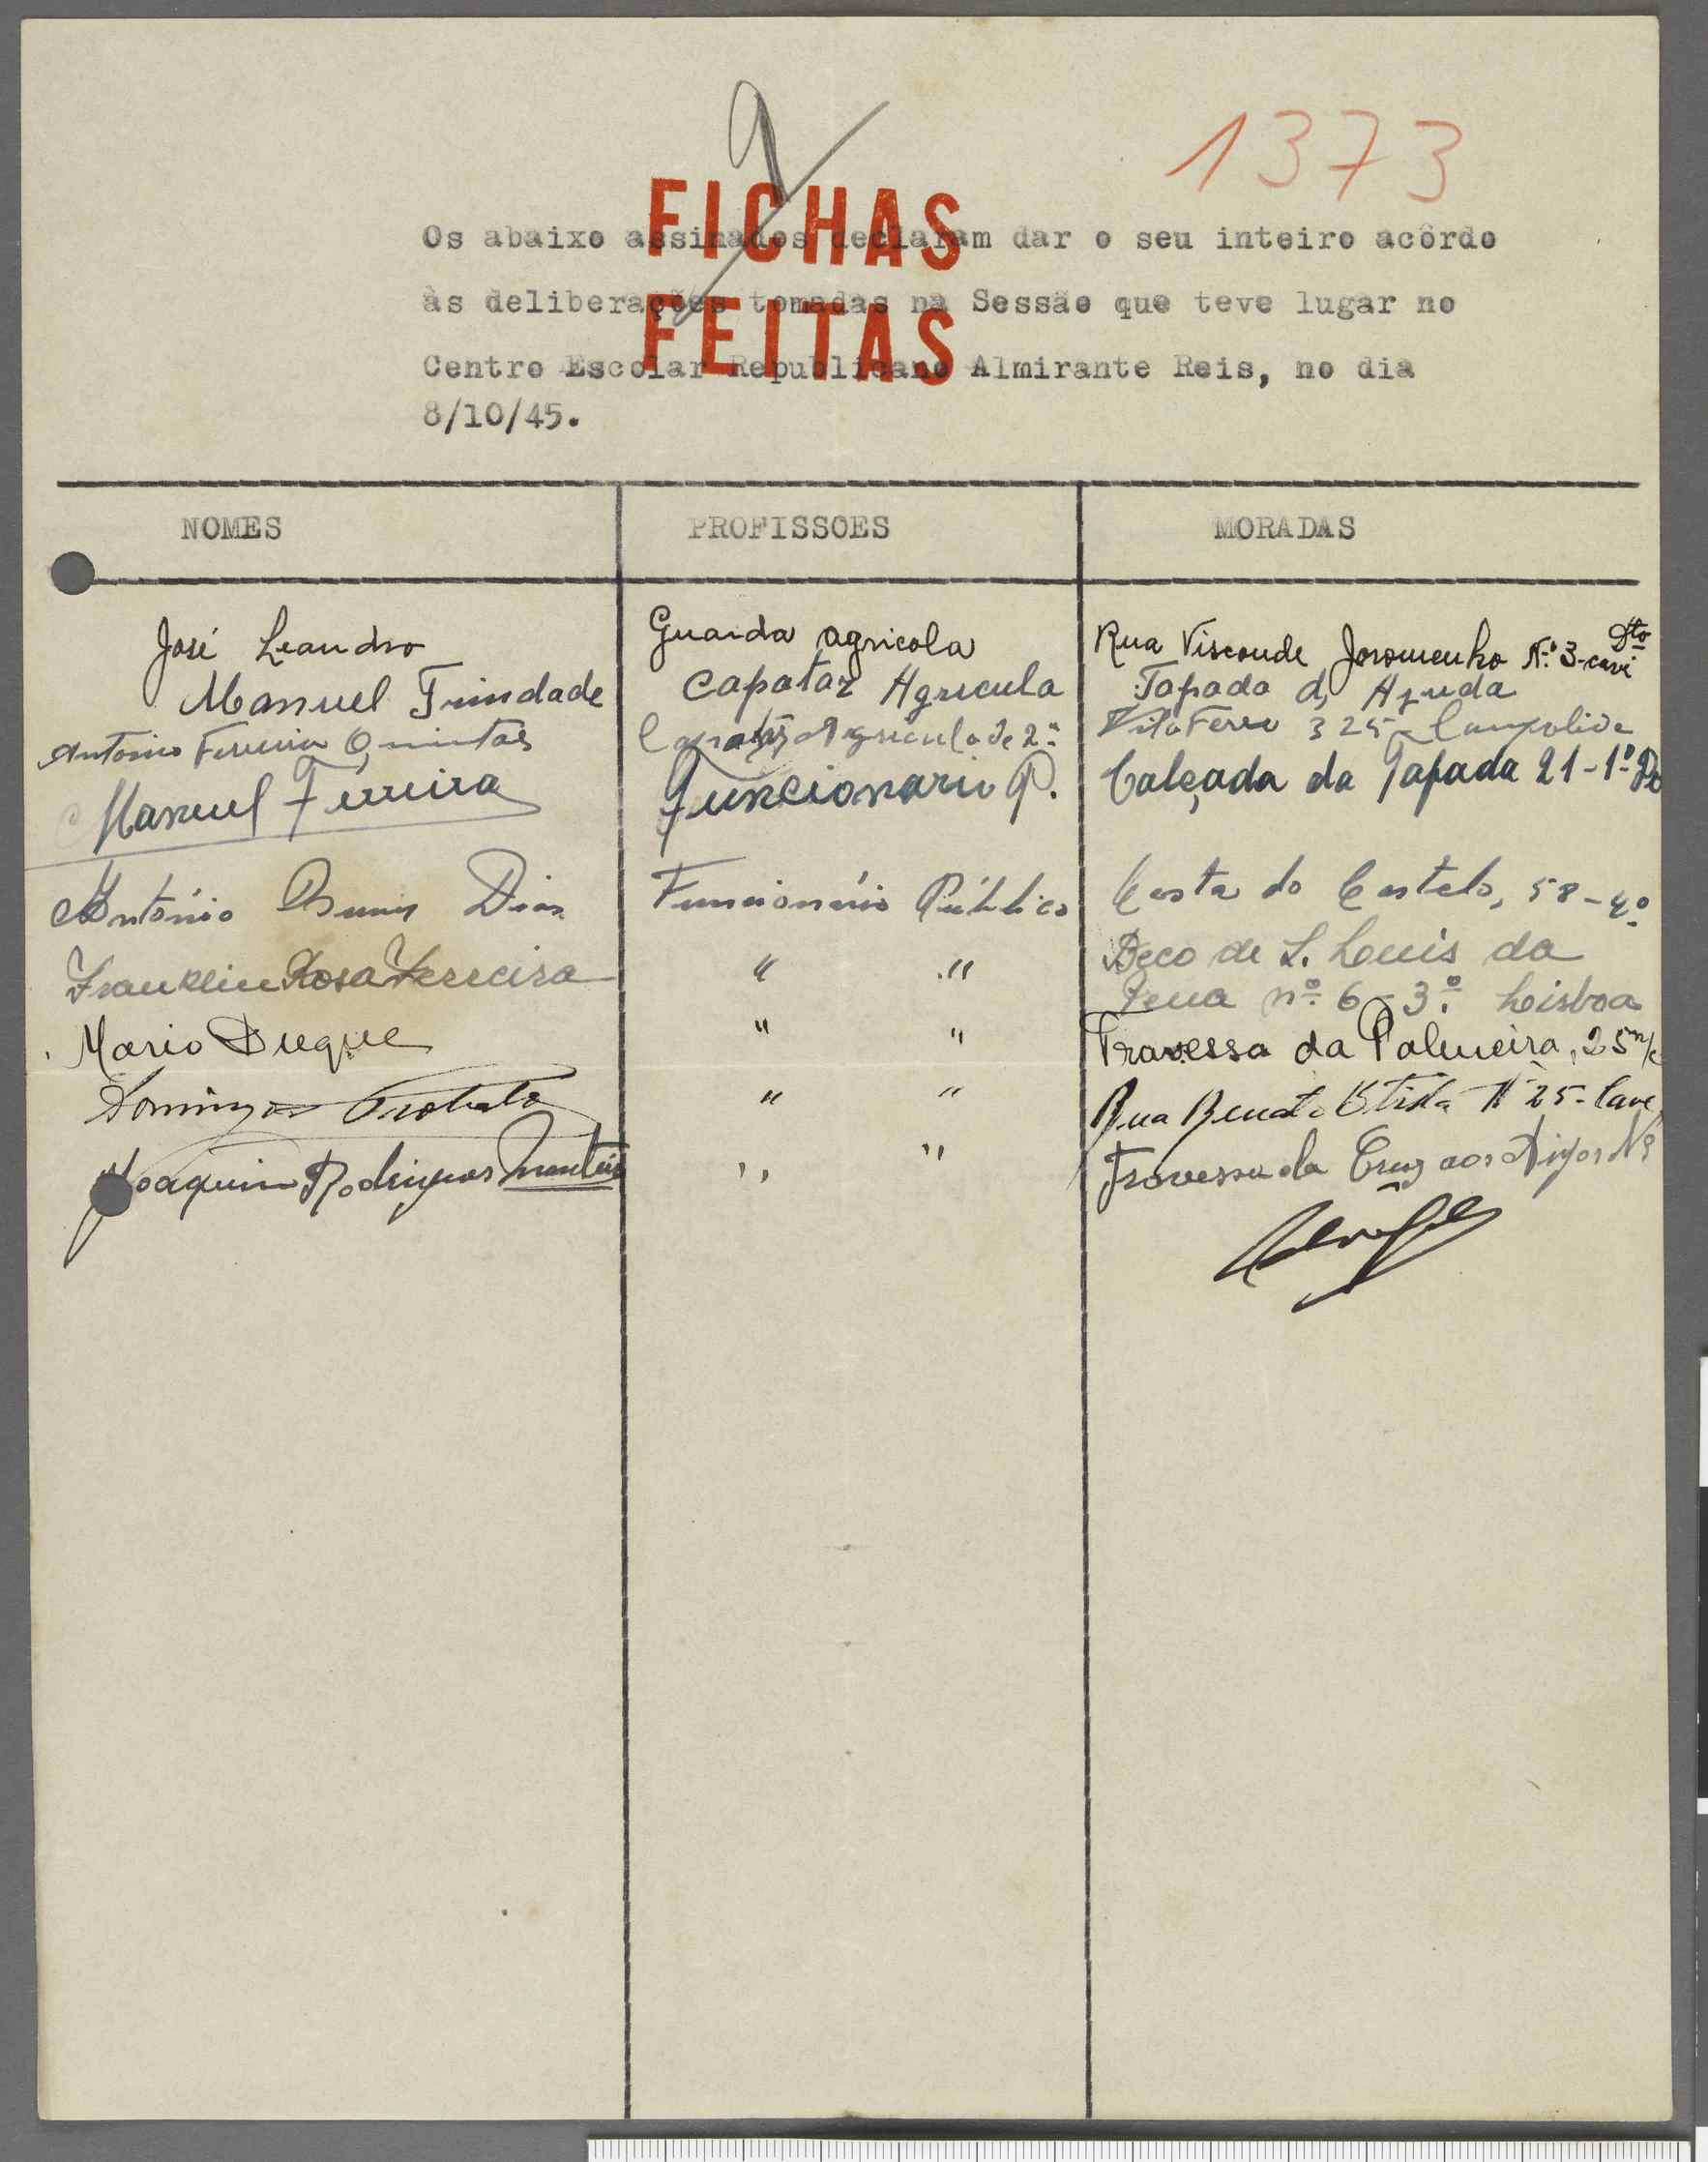 9
1373
FICHAS
FEITAS
Os abaixo assinados declaram dar o seu inteiro acôrdo
às deliberações tomadas na Sessão que teve lugar no
Centro Escolar Republicano Almirante Reis, no dia
8/10/45.
NOMES PROFISSOES MORADAS
José Leandro Guarda agricola Rua Visconde Joromenho Nº 3-cave Dto
Manuel Trindade Capataz Agricula Tapada d Ajuda
Antonio Ferreira Quintas Capataz Agricula de 2ª Vila Ferro 325 Campolide
Manuel Ferreira Funcionario P. Calçada da Tapada 21-1º
António Dias Funcionário Público Costa do Castelo, 58-4º
Franklin Rosa Ferreira " " Beco de S. Luis da
Pena nº 6-3º. Lisboa
Mario Duque " " Travessa da Palmeira, 25 r/c
Domingos " " Rua Nº 25-Cave
Joaquim Rodrigues Monteiro " " Travessa da Cruz aos Anjos Nº